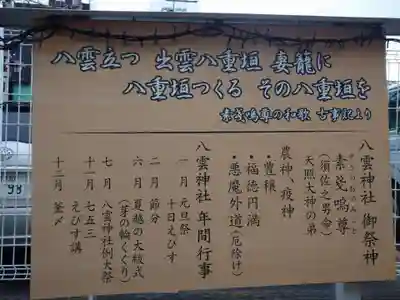 八雲立つ 出雲八重垣 妻籠に
八重垣つくる その八重垣を
素戔嗚尊の和歌 古事記より
八雲神社 御祭神
素戔嗚尊
すさのおのみこと
(須佐之男命)
天照大神の弟
農神・疫神
・豊穣
・福徳円満
・悪魔外道(厄除け)
八雲神社 年間行事
一月 元旦祭
十日えびす
二月 節分
六月 夏越の大祓式
(茅の輪くぐり)
七月 八雲神社例大祭
十一月 七五三
えびす講
十二月 釜〆